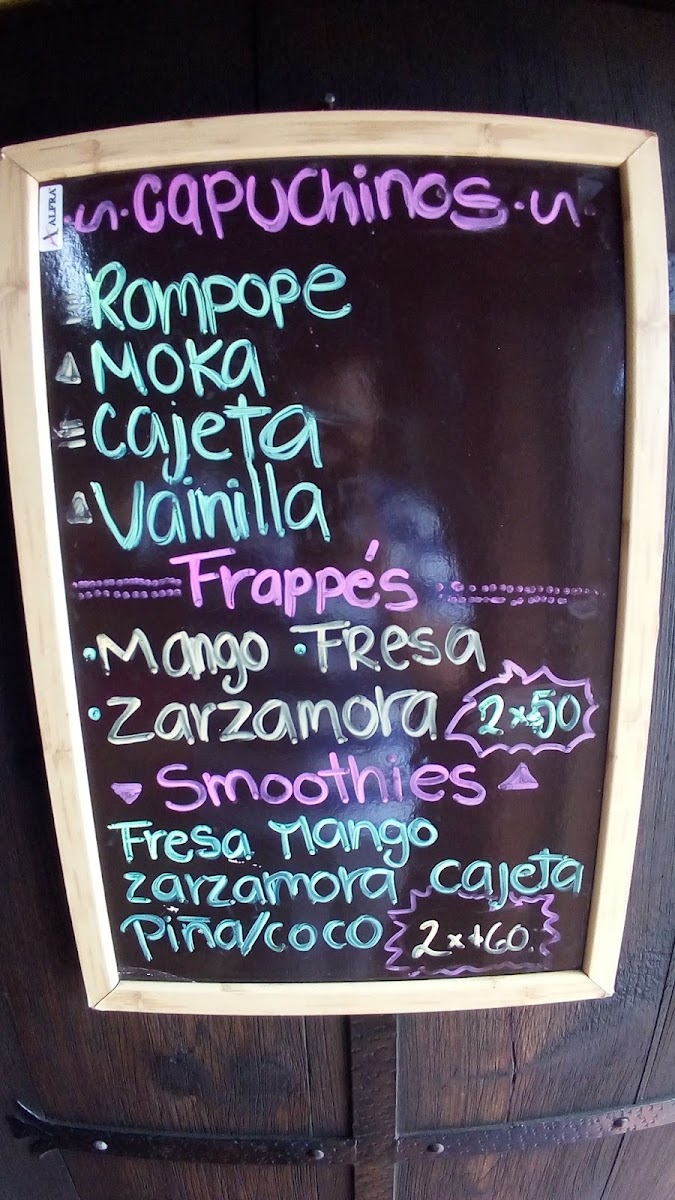 ALFRA
CAPUChinos
Rompope
MOKA
cajeta
Vainilla
Frappés
Mango Fresa
zarzamora 2x$50
Smoothies
Fresa Mango
zarzamora cajeta
Piña/coco 2x$60